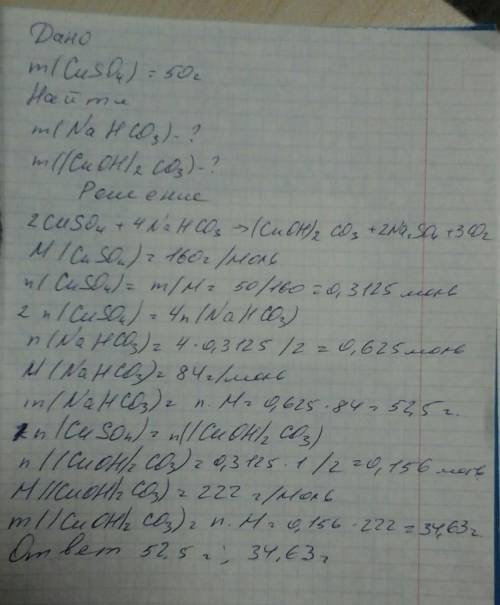 Дано
m(CuSO4) = 50г
Найти
m(NaHCO3) - ?
m((CuOH)2CO3) - ?
Решение
2CuSO4 + 4NaHCO3 → (CuOH)2CO3 + 2Na2SO4 + 3CO2
M(CuSO4) = 160г/моль
n(CuSO4) = m/M = 50/160 = 0,3125 моль
2 n(CuSO4) = 4n(NaHCO3)
n(NaHCO3) = 4 · 0,3125 / 2 = 0,625 моль
M(NaHCO3) = 84г/моль
m(NaHCO3) = n · M = 0,625 · 84 = 52,5 г.
2n(CuSO4) = n((CuOH)2CO3)
n((CuOH)2CO3) = 0,3125 · 1 / 2 = 0,156 моль
M((CuOH)2CO3) = 222 г/моль
m((CuOH)2CO3) = n · M = 0,156 · 222 = 34,63г.
Ответ 52,5 г; 34,63г